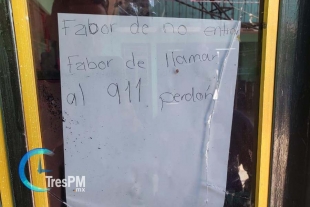 Fabor de no entrar
Fabor de llamar
al 911 perdón
TresPM
.mx